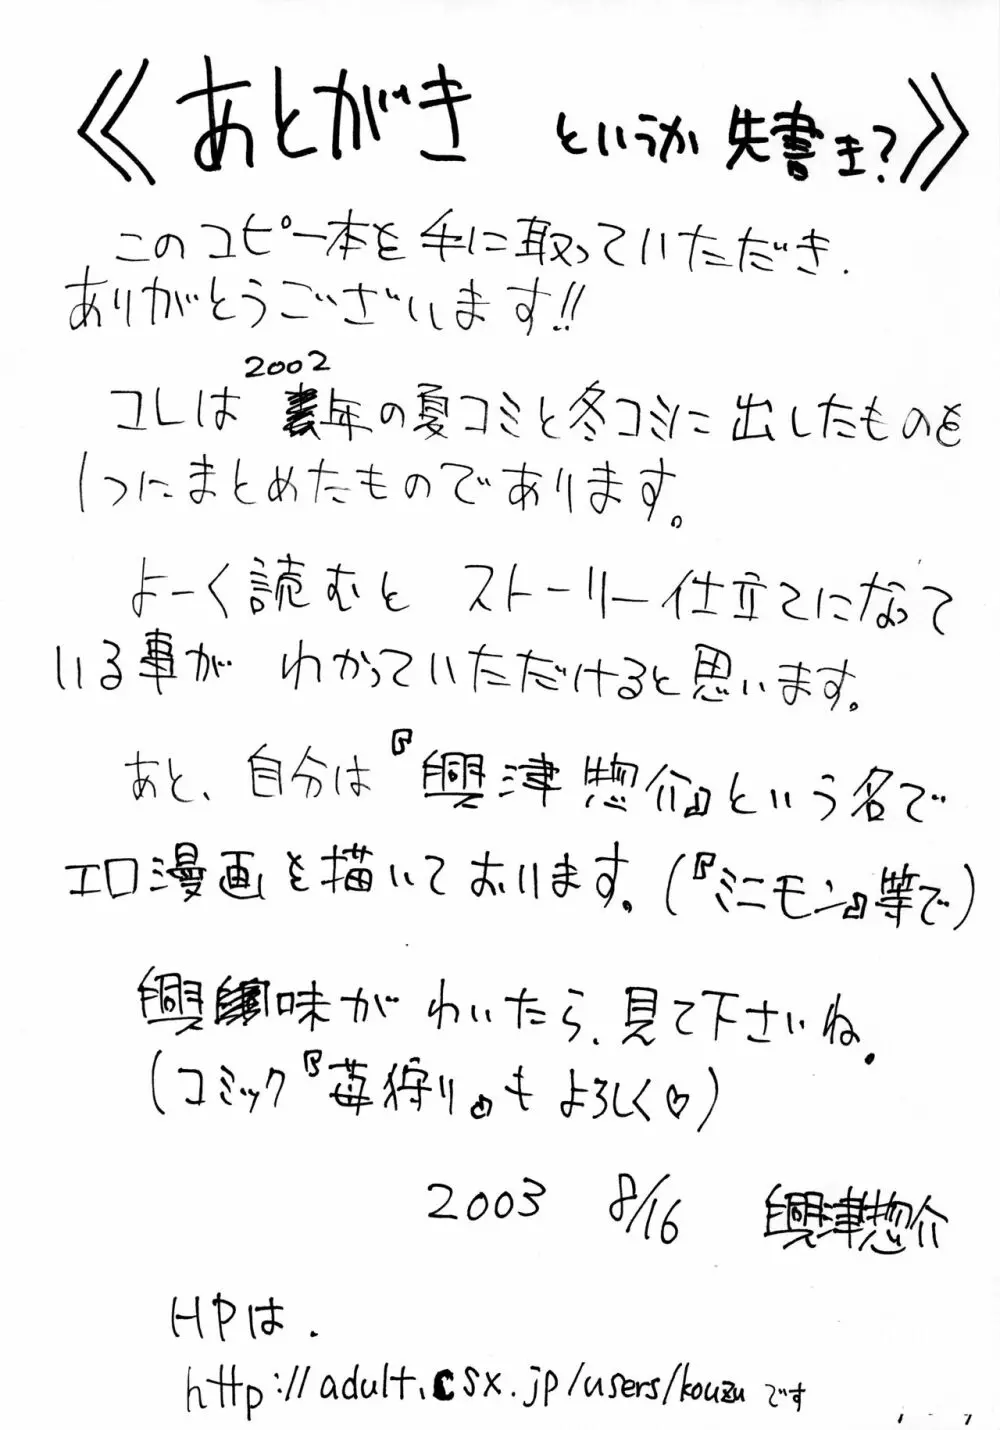 《あとがき というか 先書き?》
このコピー本を手に取っていただき.
ありがとうございます!!
2002
コレは 年の夏コミと冬コミに出したものを
1つにまとめたものであります。
よーく読むと ストーリー仕立てになって
いる事が わかっていただけると思います。
あと、自分は『興津惣介』という名で
エロ漫画を描いております。(『ミニモン』等で)
興味がわいたら、見て下さいね。
(コミック『苺狩り』も よろしく♡)
2003 8/16 興津惣介
HPは.
http://adult.csx.jp/users/kouzu です